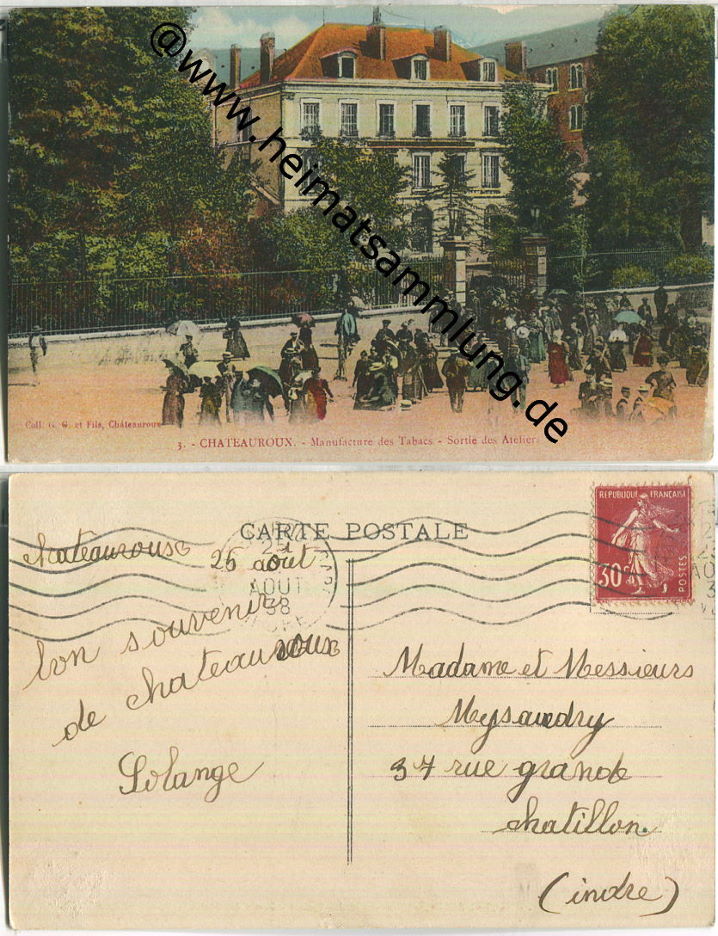 @www.heimatsammlung.de
Coll. G. G. et Fils, Châteauroux
3. - CHATEAUROUX. - Manufacture des Tabacs - Sortie des Ateliers
CARTE POSTALE
REPUBLIQUE FRANÇAISE
30c
POSTES
chateauroux
26 août
AOUT
38
bon souvenir
de chateauroux
Solange
Madame et Messieurs
37 rue grande
chatillon.
(indre)